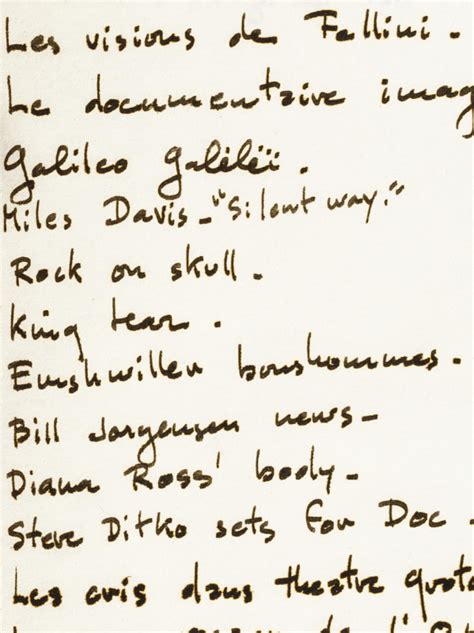 Les visions de Fellini.
Le documentaire imag
Galileo Galéléï.
Miles Davis - "Silent way."
Rock on skull.
King tear.
Emshwiller bonshommes.
Bill Jorgensen news -
Diana Ross' body -
Steve Ditko sets for Doc.
Les cris dans theatre quot
de l'O